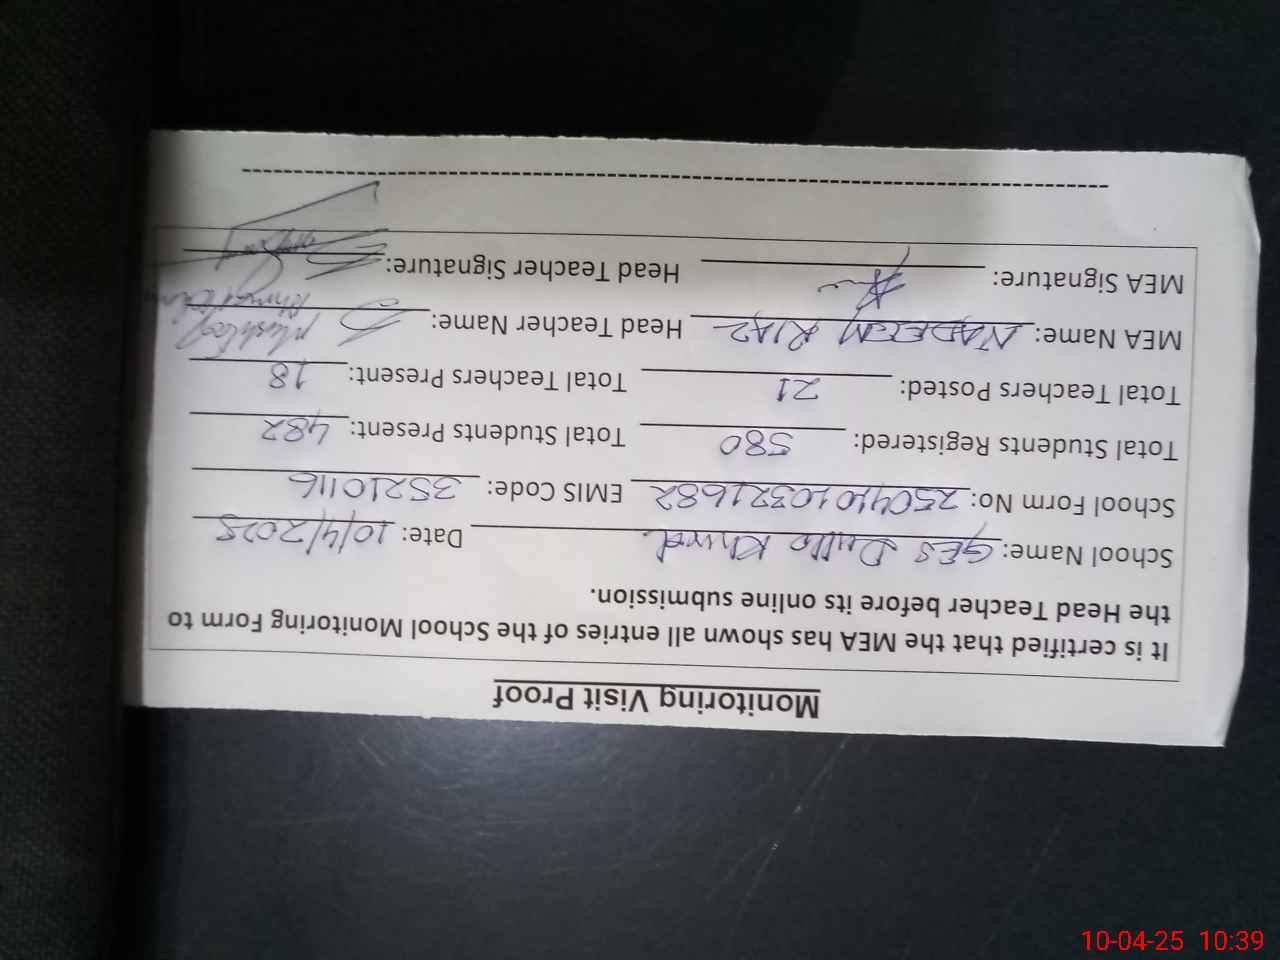 Monitoring Visit Proof
It is certified that the MEA has shown all entries of the School Monitoring Form to
the Head Teacher before its online submission.
School Name: GES Dullo Khurd. Date: 10/4/2025
School Form No: 250410103221682 EMIS Code: 35210116
Total Students Registered: 580 Total Students Present: 482
Total Teachers Posted: 21 Total Teachers Present: 18
MEA Name: NADEEM RIAZ Head Teacher Name: Mushtaq
MEA Signature: Head Teacher Signature:
10-04-25 10:39